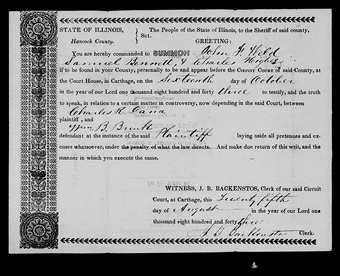 STATE OF ILLINOIS,
Hancock County.
Sct.
The People of the State of Illinois, to the Sheriff of said county,
GREETING:
You are hereby commanded to SUMMON John F Weld
Samuel Bennett, & Charles
if to be found in your County, personally to be and appear before the CIRCUIT COURT of said County, at
the Court House, in Carthage, on the Sixteenth day of October
in the year of our Lord one thousand eight hundred and forty three to testify, and the truth
to speak, in relation to a certain matter in controversy, now depending in the said Court, between
Charles R. Dana
plaintiff, and
B.
defendant at the instance of the said Plaintiff laying aside all pretenses and ex-
cuses whatsoever, under the penalty of what the law directs. And make due return of this writ, and the
manner in which you execute the same.
WITNESS, J. B. BACKENSTOS, Clerk of our said Circuit
Court, at Carthage, this Twenty fifth
day of August in the year of our Lord one
thousand eight hundred and forty three
J. B. Backenstos Clerk.